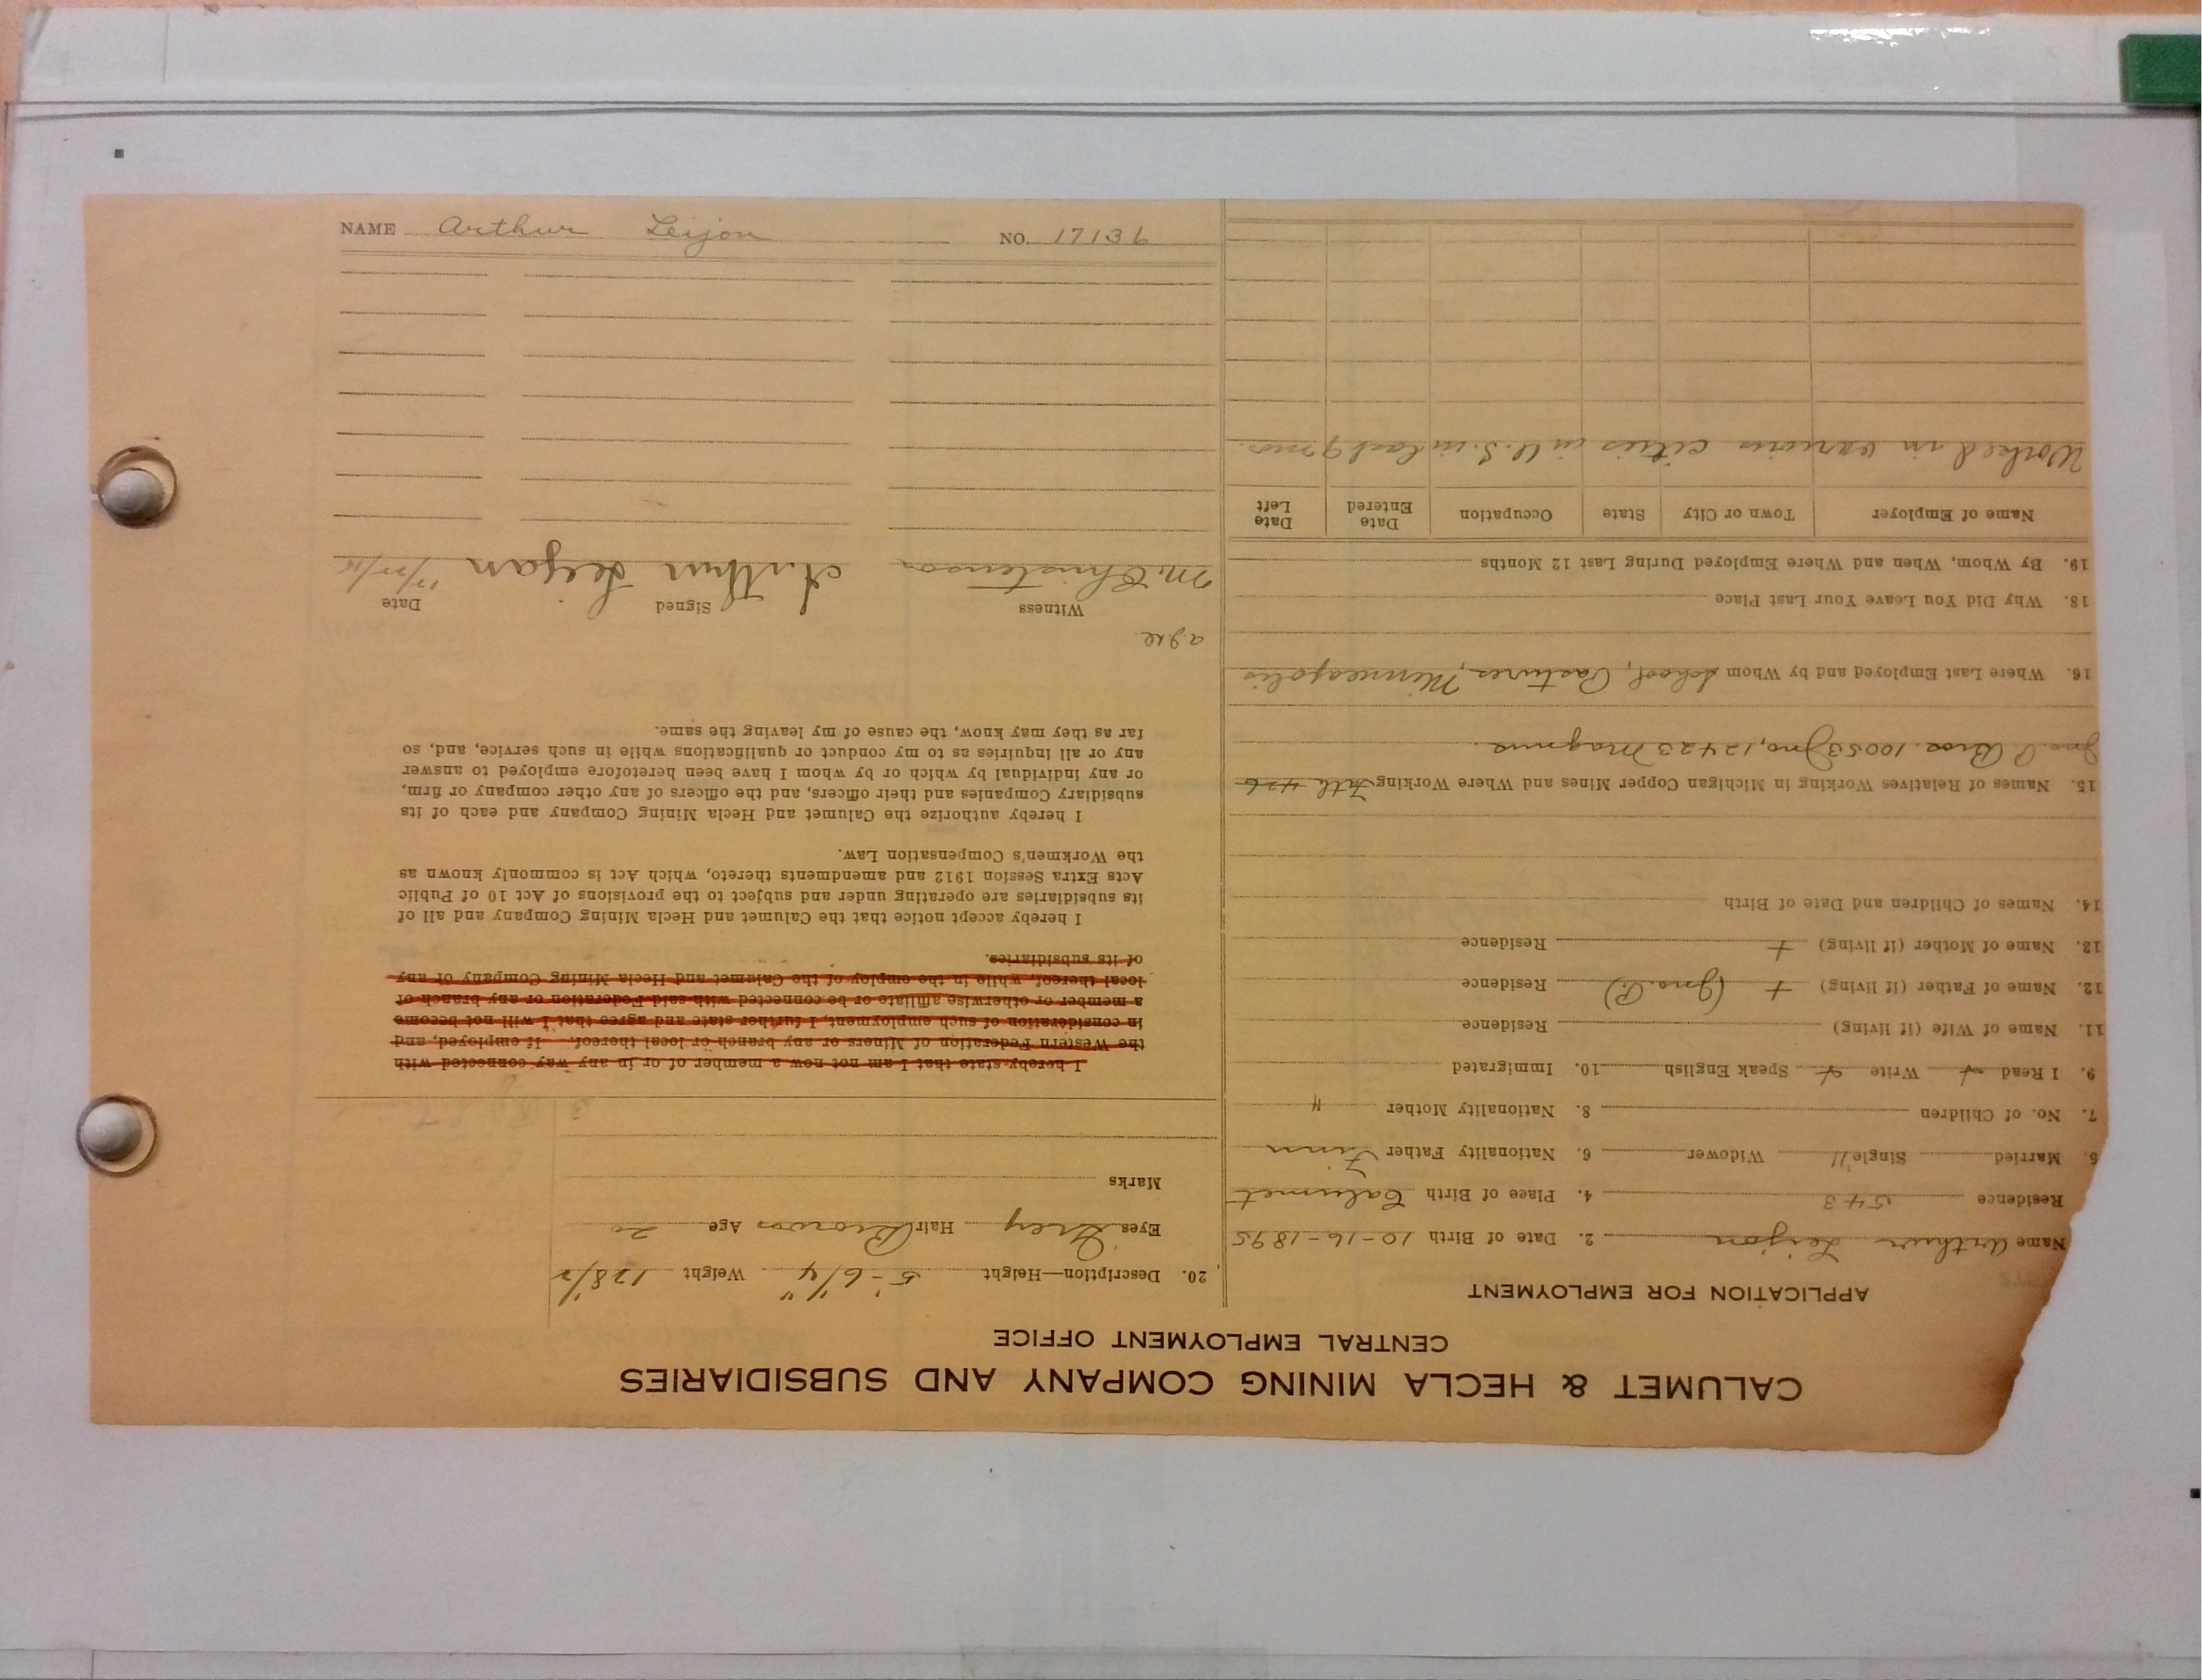 NAME Arthur Leijon NO. 17136
CALUMET & HECLA MINING COMPANY AND SUBSIDIARIES
CENTRAL EMPLOYMENT OFFICE
APPLICATION FOR EMPLOYMENT
Name Arthur Leijon 2. Date of Birth 10-16-1895
Residence 543 4. Place of Birth Calumet
5. Married Single 11 Widower 6. Nationality Father Finn
7. No. of Children 8. Nationality Mother "
9. I Read + Write + Speak English 10. Immigrated
11. Name of Wife (if living) Residence
12. Name of Father (if living) + (Jno. P.) Residence
13. Name of Mother (if living) + Residence
14. Names of Children and Date of Birth
15. Names of Relatives Working in Michigan Copper Mines and Where Working Fath 426
Jno. P. Bros. 10053 Jno, 12423 Magnus.
16. Where Last Employed and by Whom School, Minneapolis
18. Why Did You Leave Your Last Place
19. By Whom, When and Where Employed During Last 12 Months
Name of Employer Town or City State Occupation Date Entered Date Left
Worked in various cities in U.S. in last 9 mos.
20. Description—Height 5'-6 1/4" Weight 128 1/2
Eyes Grey Hair Brown Age 20
Marks
I hereby state that I am not now a member of or in any way connected with
the Western Federation of Miners or any branch or local thereof. If employed, and
in consideration of such employment, I further state and agree that I will not become
a member or otherwise affiliate or be connected with said Federation or any branch or
local thereof, while in the employ of the Calumet and Hecla Mining Company or any
of its subsidiaries.
I hereby accept notice that the Calumet and Hecla Mining Company and all of
its subsidiaries are operating under and subject to the provisions of Act 10 of Public
Acts Extra Session 1912 and amendments thereto, which Act is commonly known as
the Workmen's Compensation Law.
I hereby authorize the Calumet and Hecla Mining Company and each of its
subsidiary Companies and their officers, and the officers of any other company or firm,
or any individual by which or by whom I have been heretofore employed to answer
any or all inquiries as to my conduct or qualifications while in such service, and, so
far as they may know, the cause of my leaving the same.
Witness Signed Date
M. Christenson Arthur Leijon